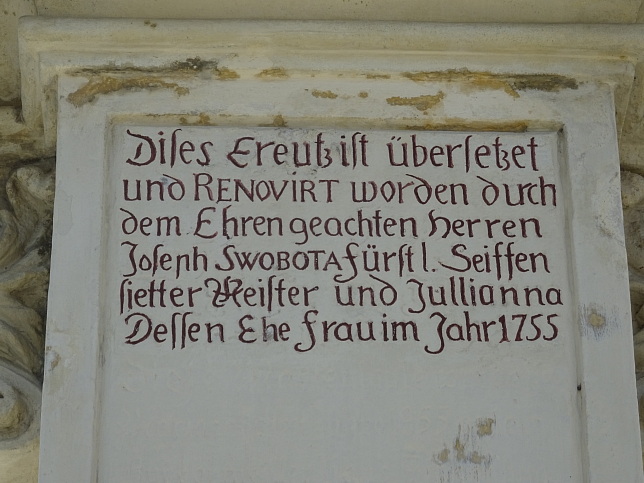 Diſes Creutz iſt überſetzet
und RENOVIRT worden durch
dem Ehren geachten Herren
Joſeph SWOBOTA fürſtl. Seiffen
ſietter Meiſter und Jullianna
Deſſen Ehe frau im Jahr 1755